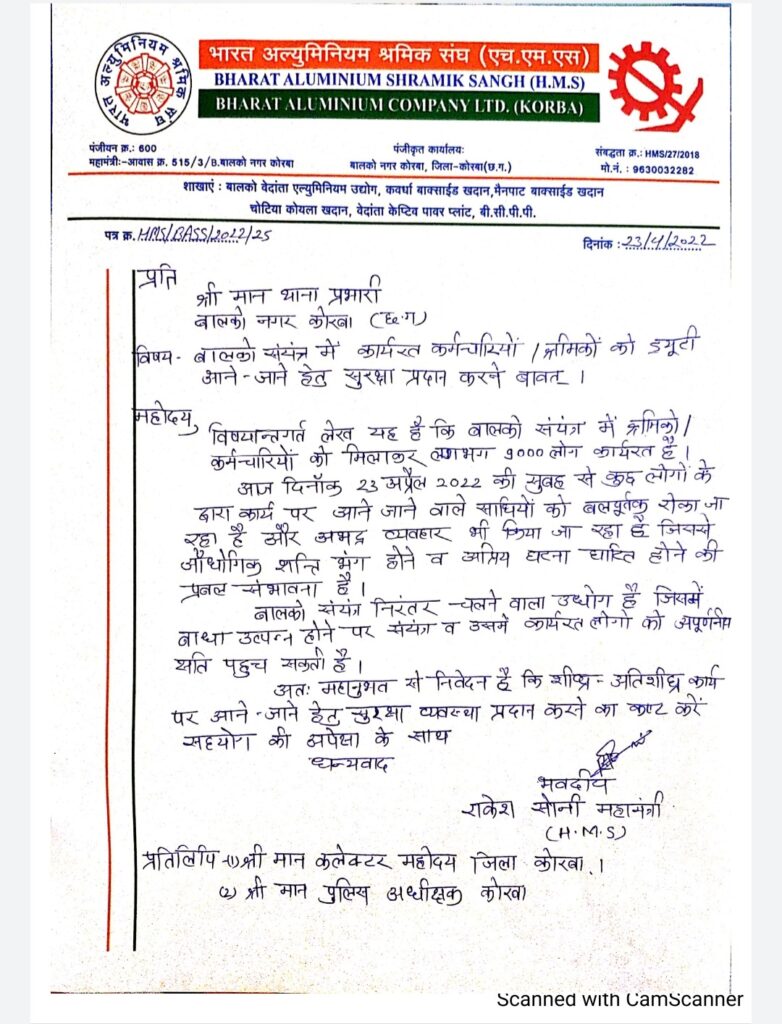 भारत अल्युमिनियम श्रमिक संघ
भारत अल्युमिनियम श्रमिक संघ (एच.एम.एस)
BHARAT ALUMINIUM SHRAMIK SANGH (H.M.S)
BHARAT ALUMINIUM COMPANY LTD. (KORBA)
पंजीयन क्र.: 600
महामंत्री:-आवास क्र. 515/3/B.बालको नगर कोरबा
पंजीकृत कार्यालयः
बालको नगर कोरबा, जिला-कोरबा(छ.ग.)
संबद्धता क्र.: HMS/27/2018
मो.नं. : 9630032282
शाखाएं : बालको वेदांता एल्युमिनियम उद्योग, कवर्धा बाक्साईड खदान,मैनपाट बाक्साईड खदान
चोटिया कोयला खदान, वेदांता केप्टिव पावर प्लांट, बी.सी.पी.पी.
पत्र क्र. HMS/BASS/2022/25
दिनांक : 23/4/2022
प्रति
श्री मान थाना प्रभारी
बालको नगर कोरबा (छ.ग)
विषय- बालको संयंत्र में कार्यरत कर्मचारियों / श्रमिकों को ड्यूटी
आने-जाने हेतु सुरक्षा प्रदान करने बावत ।
महोदय,
विषयान्तगर्त लेख यह है कि बालको संयंत्र में श्रमिको/
कर्मचारियों को मिलाकर लगभग 9000 लोग कार्यरत है ।
आज दिनॉक 23 अप्रैल 2022 की सुबह से कुछ लोगों के
द्वारा कार्य पर आने जाने वाले साथियों को बलपूर्वक रोका जा
रहा है और अभद्र व्यवहार भी किया जा रहा है जिससे
औधोगिक शन्ति भंग होने व अप्रिय घटना घाटित होने की
प्रबल संभावना है ।
बालको संयंत्र निरंतर चलने वाला उधोग है जिसमें
बाधा उत्पन्न होने पर संयंत्र व उसमें कार्यरत लोगो को अपूर्णनिय
क्षति पहुच सकती है ।
अतः महानुभव से निवेदन है कि शीघ्र-अतिशीघ्र कार्य
पर आने-जाने हेतु सुरक्षा व्यवस्था प्रदान करने का कष्ट करें
सहयोग की अपेक्षा के साथ
धन्यवाद
भवदीय
राकेश सोनी महामंत्री
(H.M.S)
प्रतिलिपि -(1) श्री मान कलेक्टर महोदय जिला कोरबा.।
(2) श्री मान पुलिस अधीक्षक कोरबा
Scanned with CamScanner